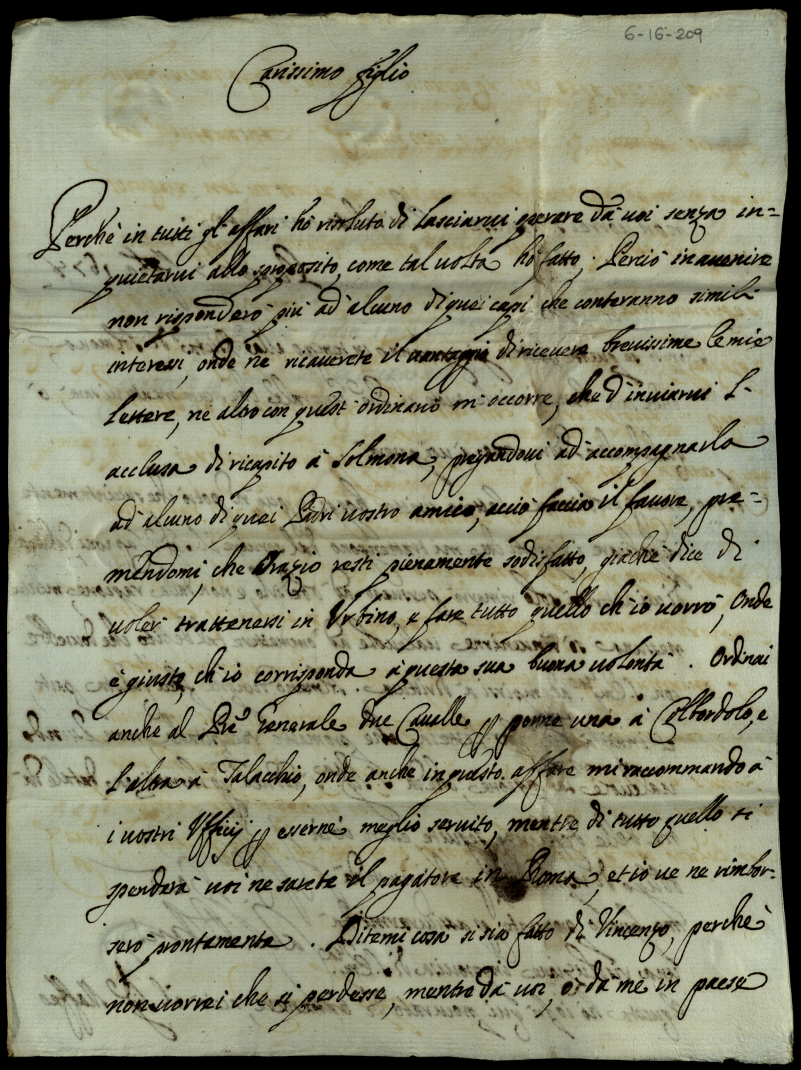 6-16-209
Carissimo figlio
Perchè in tutti gl'affari hò risoluto di lasciarui operare dà uoi senza in=
quietarui allo sproposito, come tal uolta hò fatto; Perciò in auenire
non risponderò più ad' alcuno di quei capi che conteranno simili
interessi, onde ne ricauerete il uantaggio di riceuere breuissime le mie
lettere, ne altro con quest' ordinario m' occorre, che d' inuiarui l'
acclusa di ricapito à Solmona, pregandoui ad' accompagnarla
ad' alcuno di quei Padri uostro amico, acciò faccia il fauore, pre=
mendomi, che Orazio resti pienamente sodisfatto, giachè dice di
uoler trattenersi in Urbino, e fare tutto quello ch' io uorrò, Onde
è giusto, ch' io corrisponda à questa sua buona uolontà. Ordinai
anche al Pre Generale due Caualle p porne una à Colbordolo, e
l'altra à Talacchio, onde anche in questo affare mi raccommando à
i uostri Vfficij p esserne meglio seruito, mentre di tutto quello si
spenderà uoi ne sarete il pagatore in Roma, et io ue ne rimbor=
serò prontamente. Ditemi cosa si sia fatto di Vincenzo, perchè
non uorrei che si perdesse, mentre dà uoi, ò dà me in paese